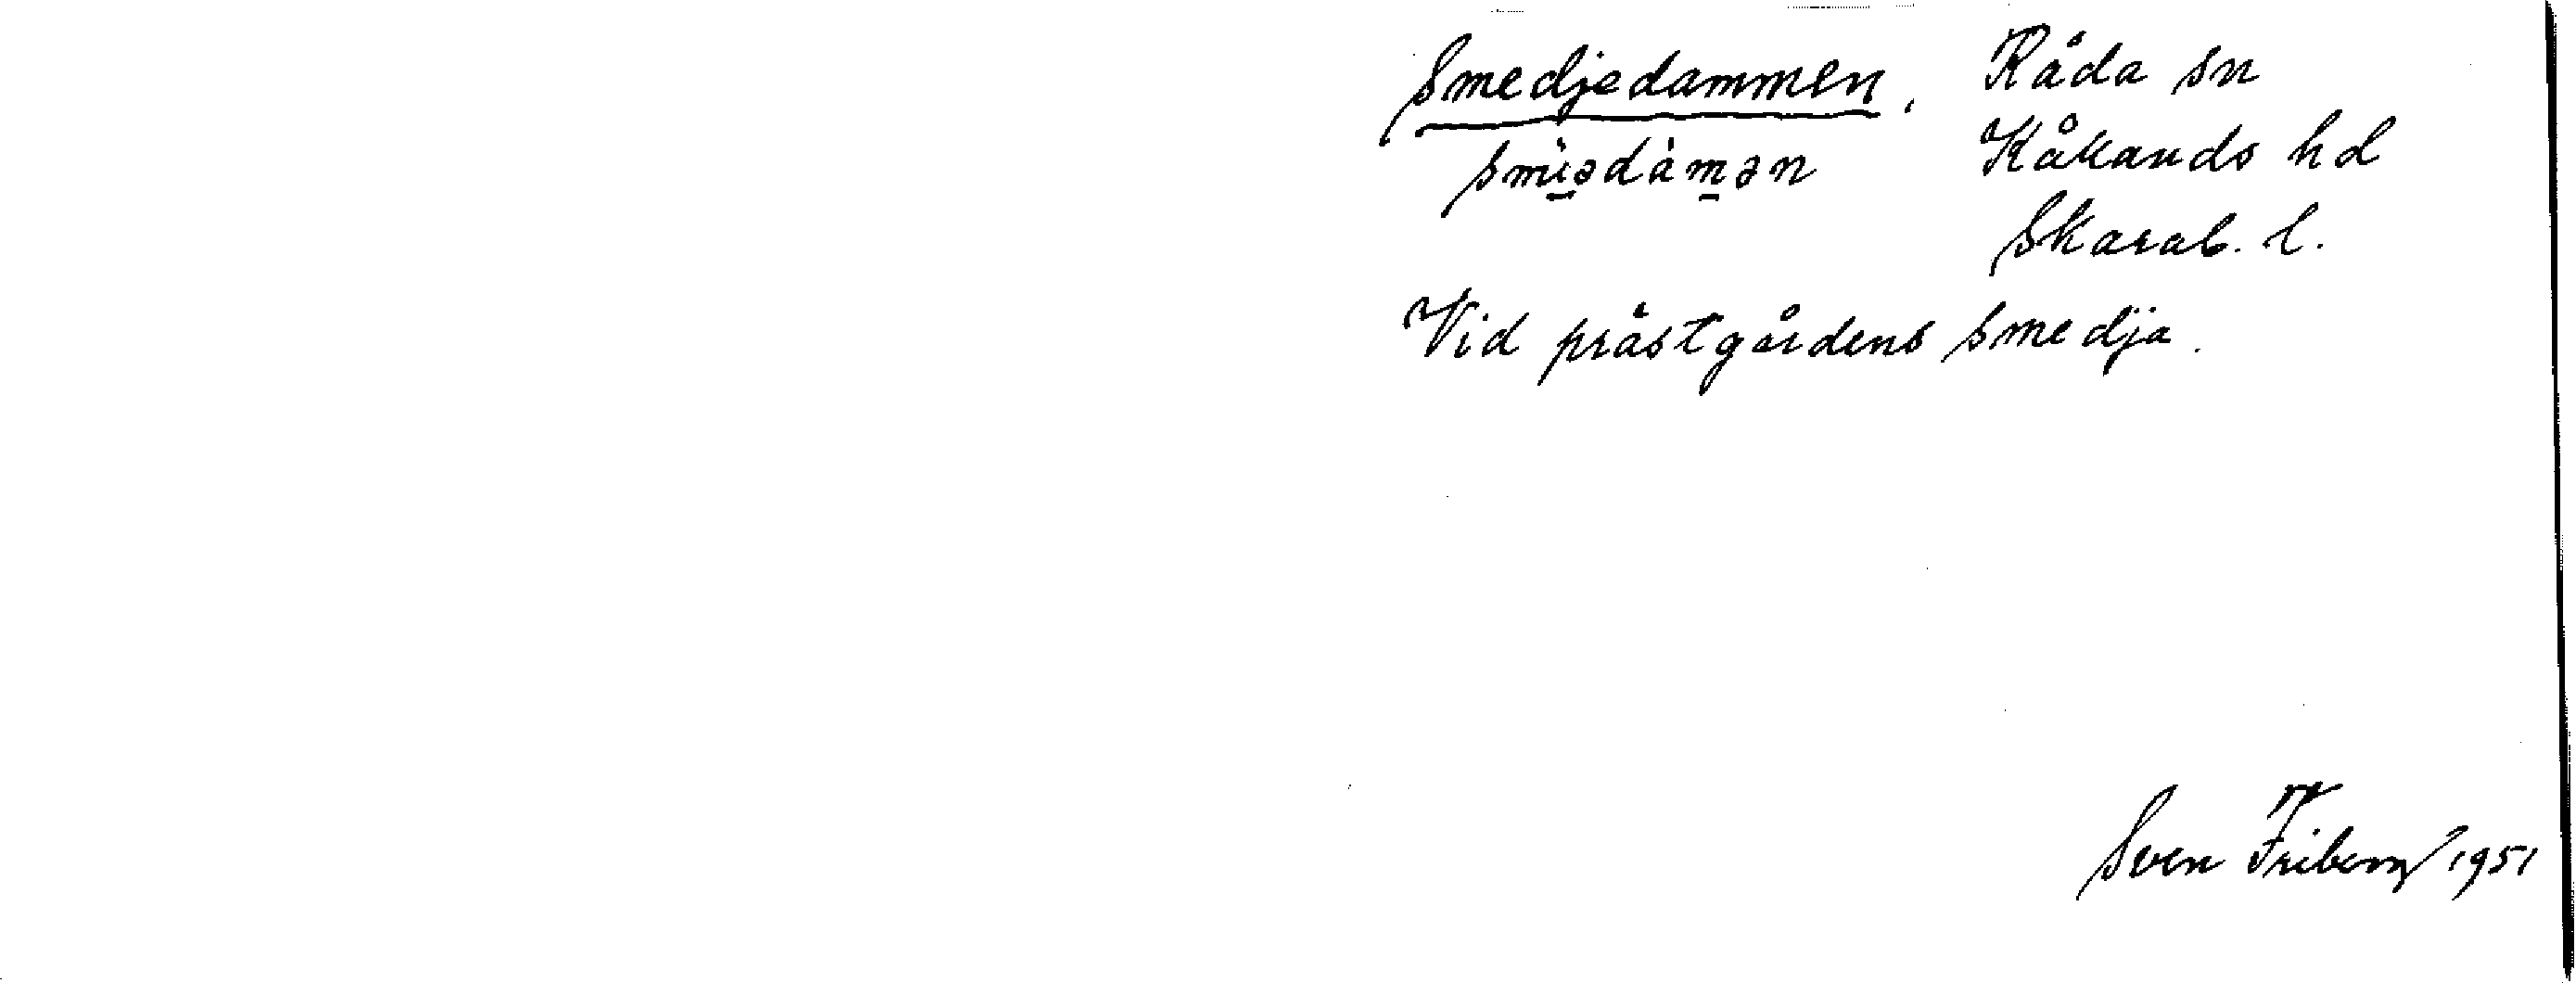 Smedjedammen, Råda sn
smìədàmən Kåkands hd
Skarab. l.
Vid prästgårdens smedja.
Sven Friberg 1951